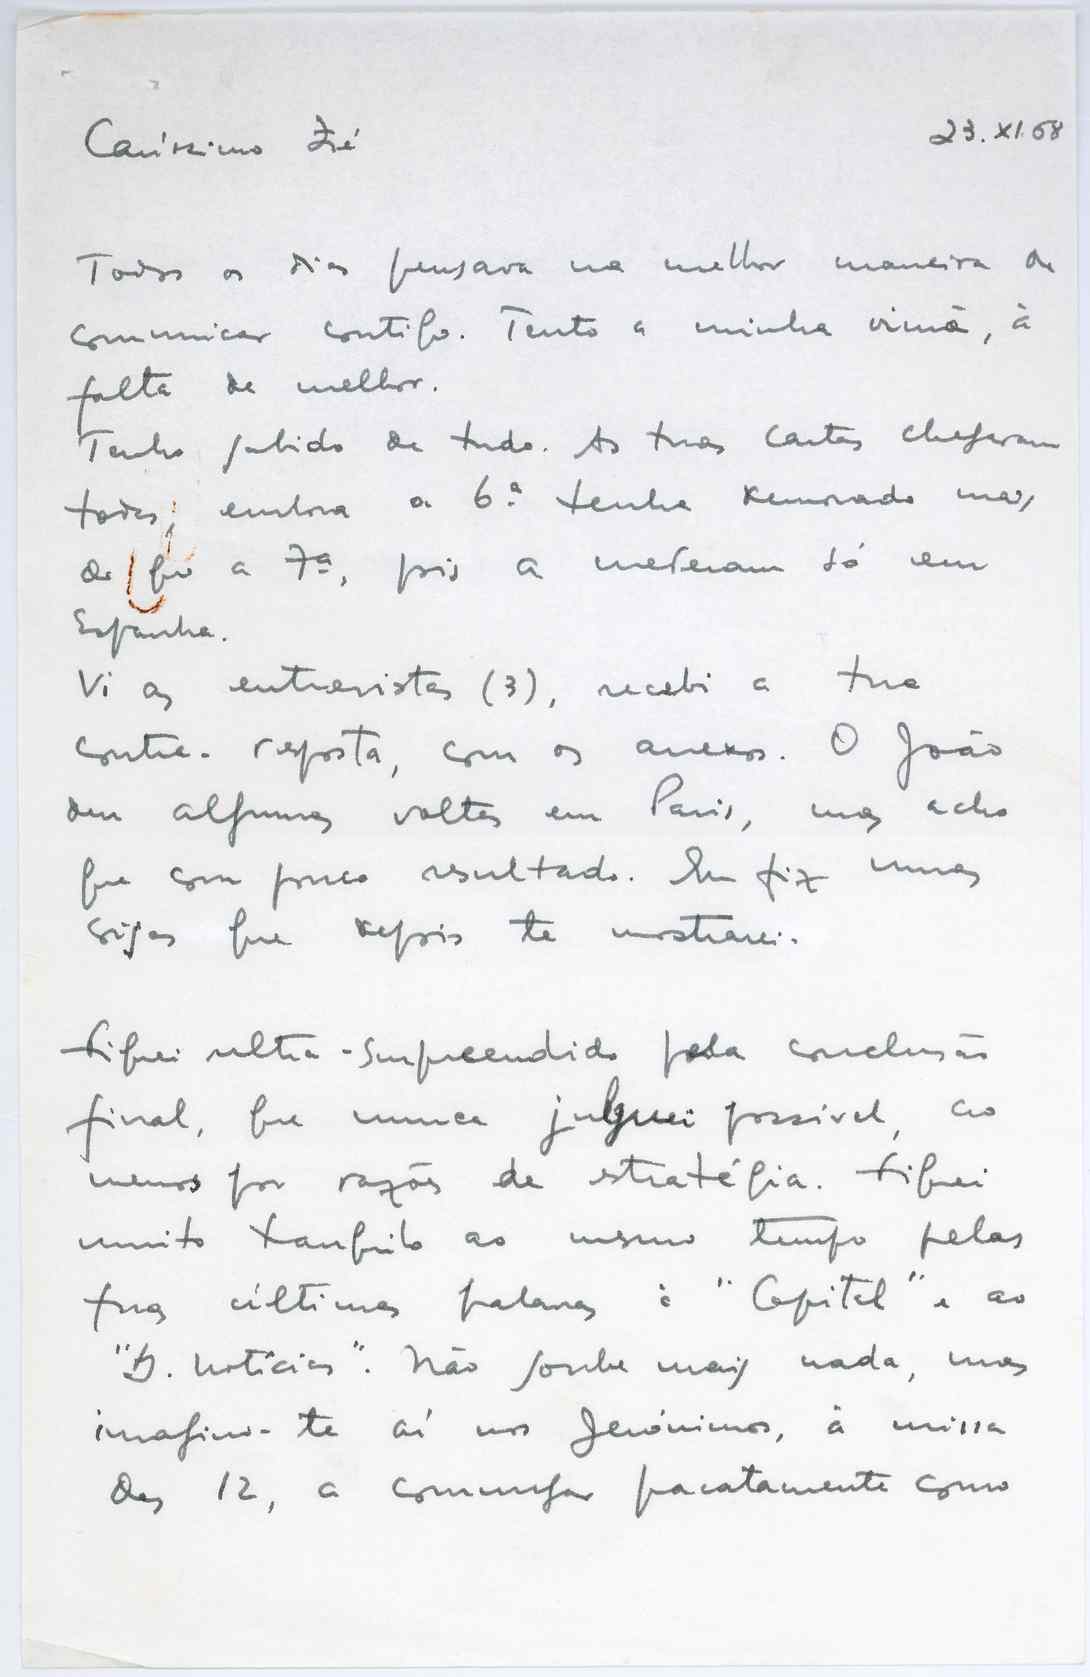 Caríssimo Zé
23.XI.68
Todos os dias pensava na melhor maneira de
comunicar contigo. Tento a minha vimã, à
falta de melhor.
Tenho sabido de tudo. As tuas cartas chegaram
todas, embora a 6ª tenha demorado mais
do que a 7ª, pois a meteram só em
Espanha.
Vi as entrevistas (3), recebi a tua
contra-resposta, com os anexos. O João
deu algumas voltas em Paris, mas acho
que com pouco resultado. Eu fiz umas
coisas que depois te mostrarei.
Fiquei ultra-surpreendido pela conclusão
final, que nunca julguei possível, ao
menos por razões de estratégia. Fiquei
muito tranquilo ao mesmo tempo pelas
tuas últimas palavras à "Capital" e ao
"D. Notícias". Não soube mais nada, mas
imagino-te aí nos Jerónimos, à missa
das 12, a comungar pacatamente como